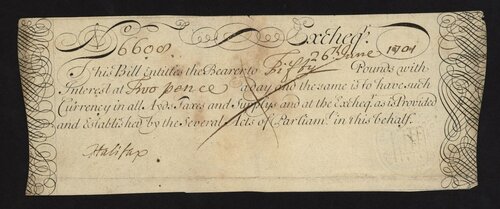 No 6608. Excheqr.
26th June 1701
This Bill entitles the Bearer to Fifty Pounds with
Interest at Two pence a day and the same is to have such
Currency in all Aydes Taxes and Supplys and at the Excheqr. as is Provided
and Established by the Several Acts of Parliamt. in this behalf.
Halifax